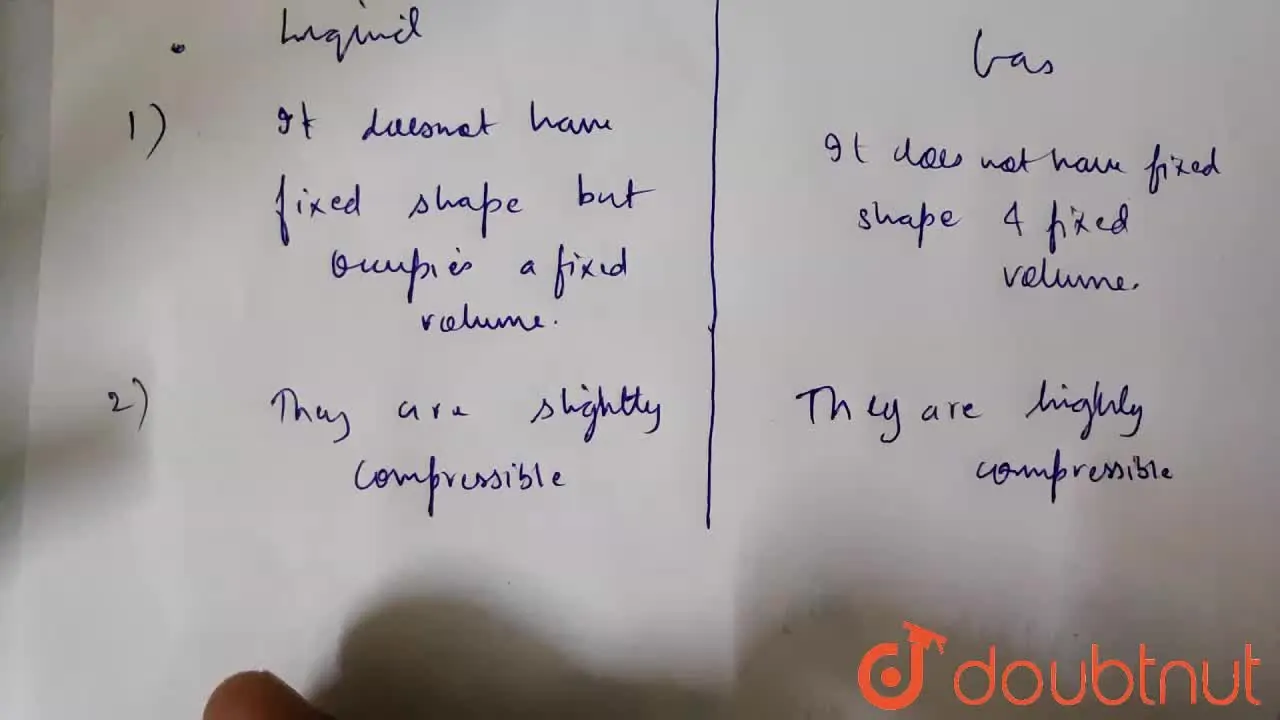 Liquid
Gas
1) It doesnot have
fixed shape but
occupies a fixed
volume.
It does not have fixed
shape & fixed
volume.
2) They are slightly
compressible
They are highly
compressible
doubtnut